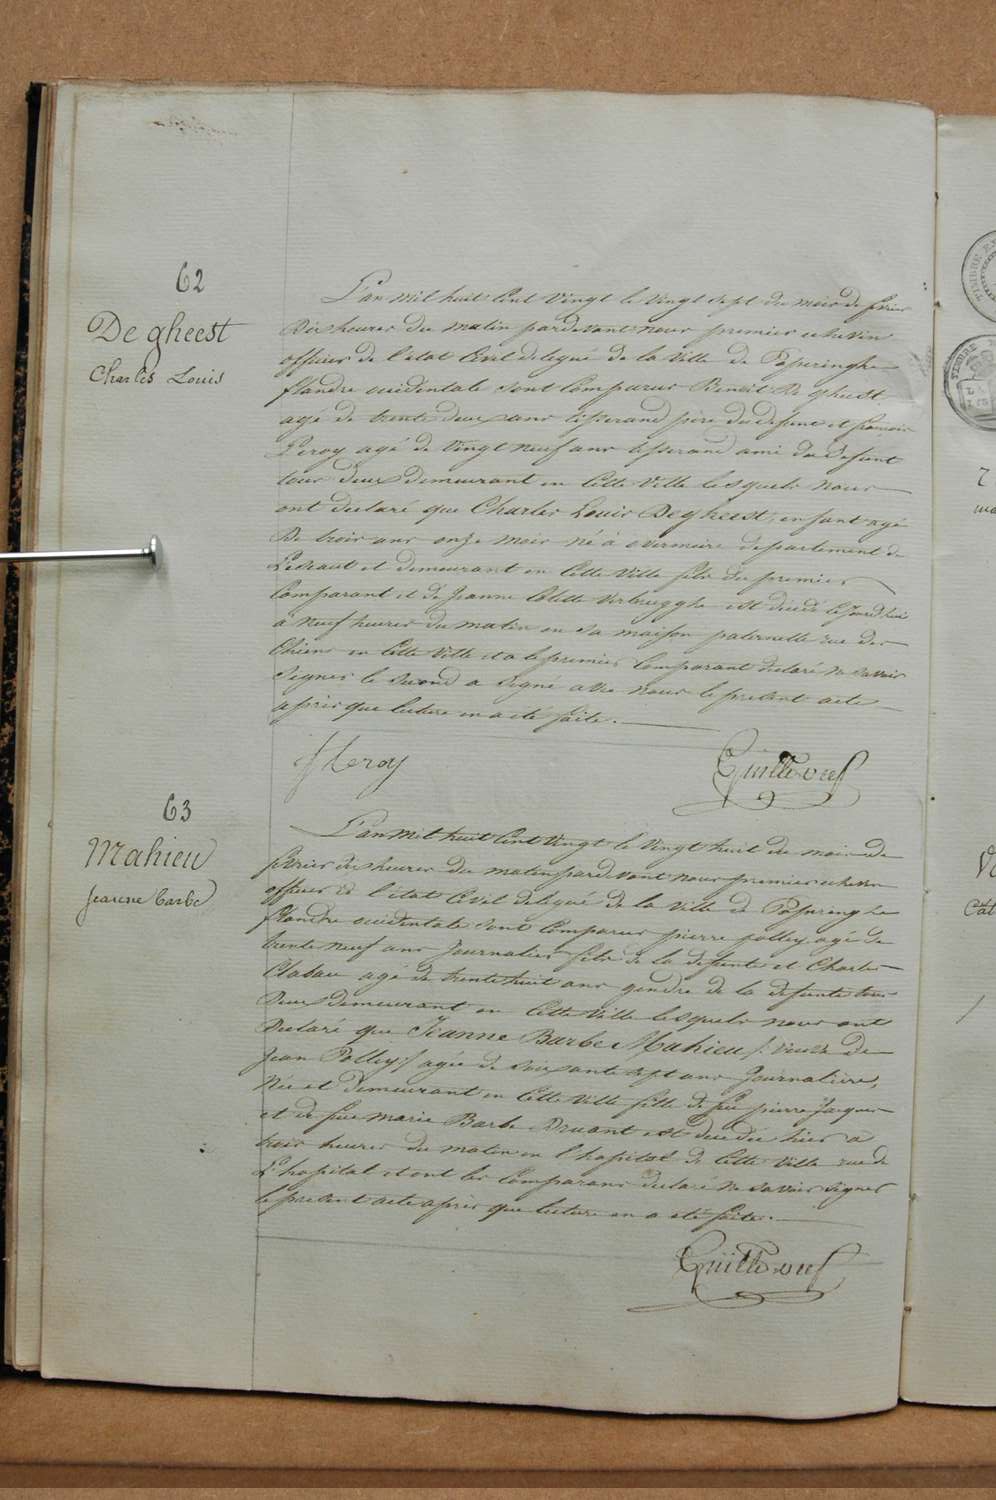 62
De gheest
Charles Louis
L'an mil huit Cent Vingt le Vingt sept du mois de fevrier
Dix heures du matin pardevant nous premier echevin
officier de l'etat Civil delegué de la Ville de Poperinghe
flandre occidentale sont Comparus Benoit De gheest
agé de trente deux ans tisserand père du defunt et françois
Leroy agé de Vingt neuf ans tisserand ami du defunt
tous deux Demeurant en Cette Ville lesquels nous
ont déclaré que Charles Louis De gheest, enfant agé
De trois ans onze mois né à overmeire departement de
L'escaut et demeurant en Cette Ville fils du premier
Comparant et de Jeanne Colette Verbrugghe est décédé Cejourd'hui
à neuf heures du matin en sa maison paternelle rue des
Chiens en Cette Ville et a le premier Comparant declaré ne savoir
Signer le second a signé avec nous le present acte
après que lecture en a eté faite.
f Leroy
63
Mahieu
Jeanne Barbe
L'an mil huit Cent Vingt le Vingt huit du mois de
fevrier dix heures du matin pardevant nous premier echevin
officier de l'état Civil delegué de la Ville de Poperinghe
flandre occidentale sont Comparus pierre polley agé de
trente neuf ans Journalier fils de la defunte et Charles
Clabau agé de trente huit ans gendre de la defunte tous
Deux demeurant en Cette Ville lesquels nous ont
Declaré que Jeanne Barbe Mahieu /: veuve de
Jean Polley :/ agée de soixante sept ans Journaliere,
Née et demeurant en Cette Ville fille de feu pierre Jacques
et de feue marie Barbe Druant est decedée hier a
trois heures du matin en l'hopital de Cette Ville rue de
L'hopital et ont les Comparans declaré ne savoir signer
le present acte après que lecture en a eté faite.